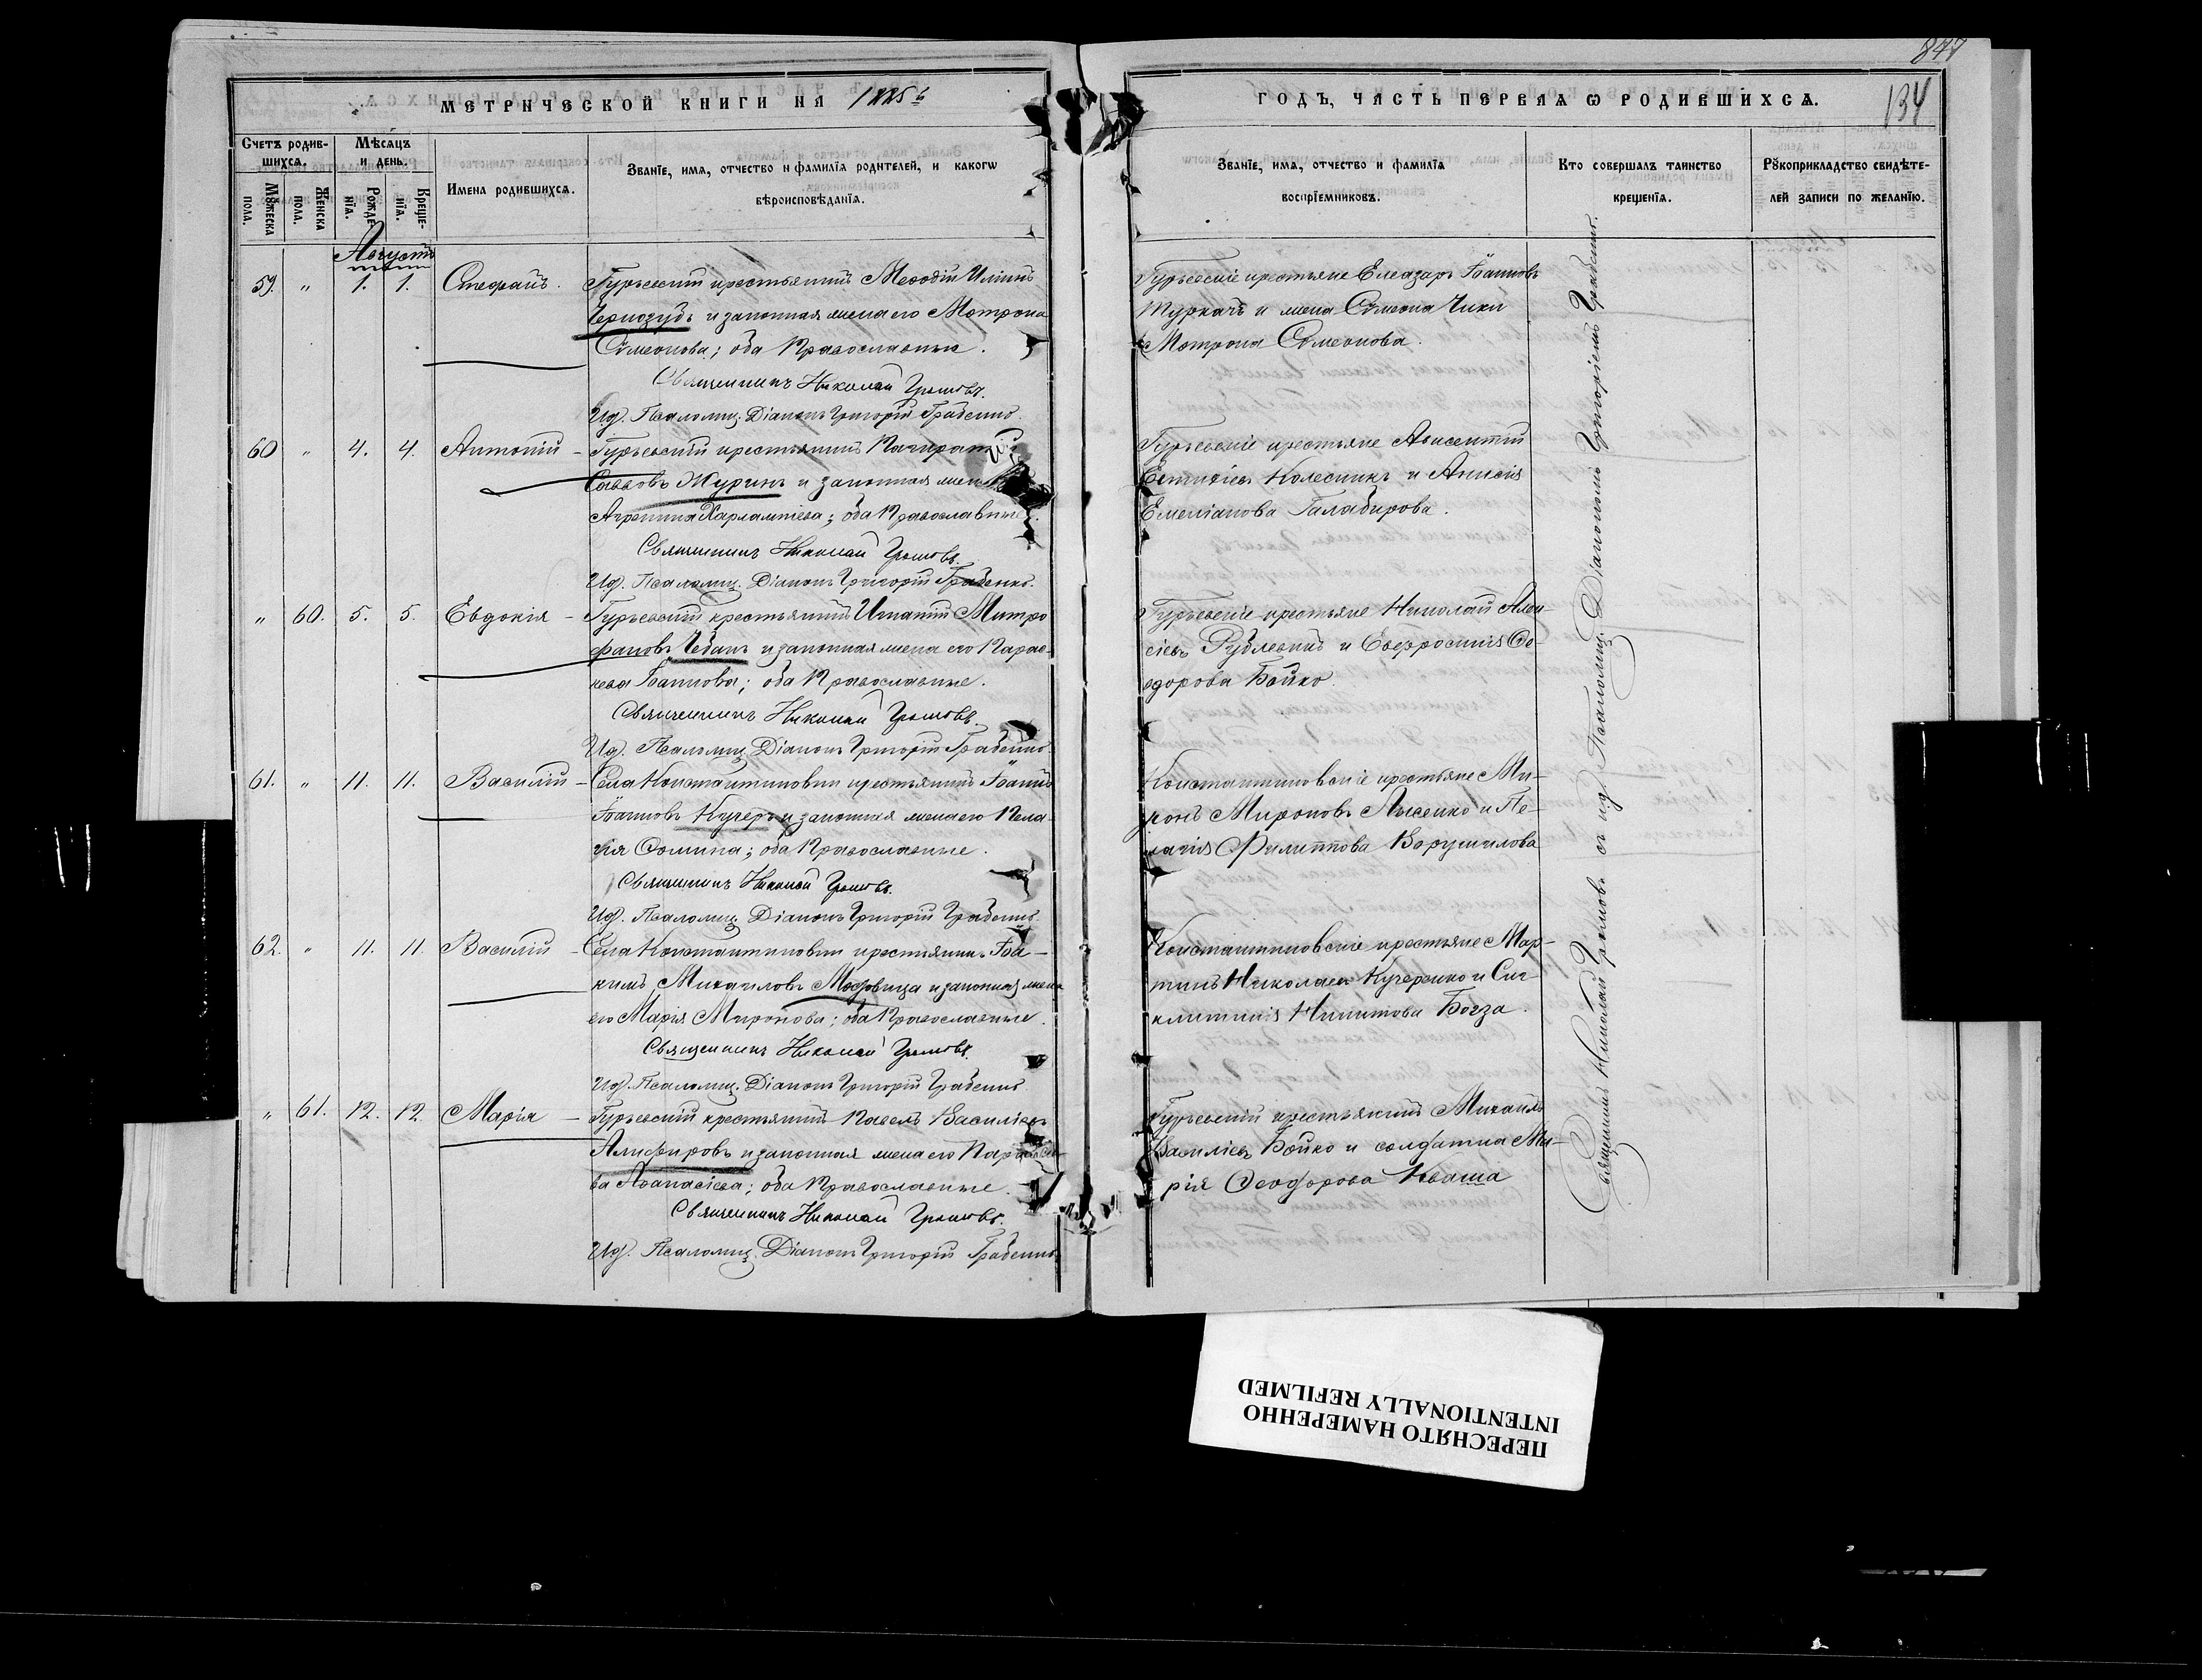 847
134
МЕТРИЧЕСКОЙ КНИГИ НА 1885 й
ГОДЪ, ЧАСТЬ ПЕРВАѦ Ѡ РОДИВШИХСѦ.
Счетъ родив-
шихсѧ.
Мѣсѧцъ
и день.
Мꙋжеска
пола.
Женска
пола.
Рожде-
нїѧ.
Креще-
нїѧ.
Имена родившихсѧ.
Званїе, имѧ, отчество и фамилїѧ родителей, и какогѡ
вѣроисповѣданїѧ.
Званїе, имѧ, отчество и фамилїѧ
воспрїемниковъ.
Кто совершалъ таинство
крещенїѧ.
Рꙋкоприкладство свидѣте-
лей записи по желанїю.
Августъ
59. " 1. 1. Стефанъ. Гурьевскій крестьянинъ Меѳодій Илiинъ
Чернозубъ и законная жена его Мотрона
Сѵмеонова; оба Православные.
Священникъ Николай Громовъ.
Ид. Псаломщ. Діаконъ Григорій Грабенко.
Гурьевскіе крестьяне Елеазаръ Іоанновъ
Туркачъ и жена Сѵмеона Чики
Мотрона Сѵмеонова.
60 " 4. 4. Антоній - Гурьевскій крестьянинъ
Саввовъ Журинъ и законная жена
Агрепина Харлампіева; оба Православные.
Священникъ Николай Громовъ.
Ид. Псаломщ. Діаконъ Григорій Грабенко.
Гурьевскіе крестьяне Авксентій
Евтихіевъ Колесникъ и Анисія
Емеліанова Галабирова.
" 60. 5. 5. Евдокія - Гурьевскій крестьянинъ Игнатій Митро
фановъ Чебанъ и законная жена его Парас-
кева Іоаннова; оба Православные.
Священникъ Николай Громовъ.
Ид. Псаломщ. Діаконъ Григорій Грабенко.
Гурьевскіе крестьяне Николай Алек
сіевъ Рублевскій и Евфросинія Ѳе-
одорова Бойко.
61. " 11. 11. Василій - Села Константиновки крестьянинъ Іоаннъ
Іоанновъ Кучеръ и законная жена его Пела-
гія Ѳомина; оба Православные.
Священникъ Николай Громовъ.
Ид. Псаломщ. Діаконъ Григорій Грабенко.
Константиновскіе крестьяне Ми-
ронъ Мироновъ Лысенко и Пе-
лагія Филиппова Ворушилова
62. " 11. 11. Василій - Села Константиновки крестьянинъ Іоа-
кимъ Михаиловъ и законная жена
его Марія Миронова; оба Православные.
Священникъ Николай Громовъ.
Ид. Псаломщ. Діаконъ Григорій Грабенко.
Константиновскіе крестьяне Мар-
тинъ Николаевъ Кучеренко и Син-
клитикія Никитова Богза.
" 61. 12. 12. Марія - Гурьевскій крестьянинъ Павелъ Василіевъ
Алифировъ и законная жена его Параске-
ва Аѳанасіева; оба Православные.
Священникъ Николай Громовъ.
Ид. Псаломщ. Діаконъ Григорій Грабенко.
Гурьевскій крестьянинъ Михаилъ
Василіевъ Бойко и солдатка Ма-
рія Ѳеодорова Кваша
Священникъ Николай Громовъ съ ид. Псаломщ. Діакономъ Григоріемъ Грабенко.
ПЕРЕСНЯТО НАМЕРЕННО
INTENTIONALLY REFILMED